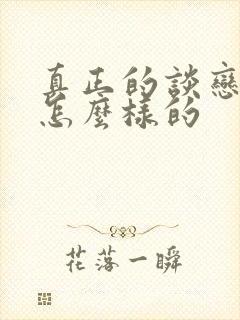 真正的談戀
怎麼樣的
花落一瞬